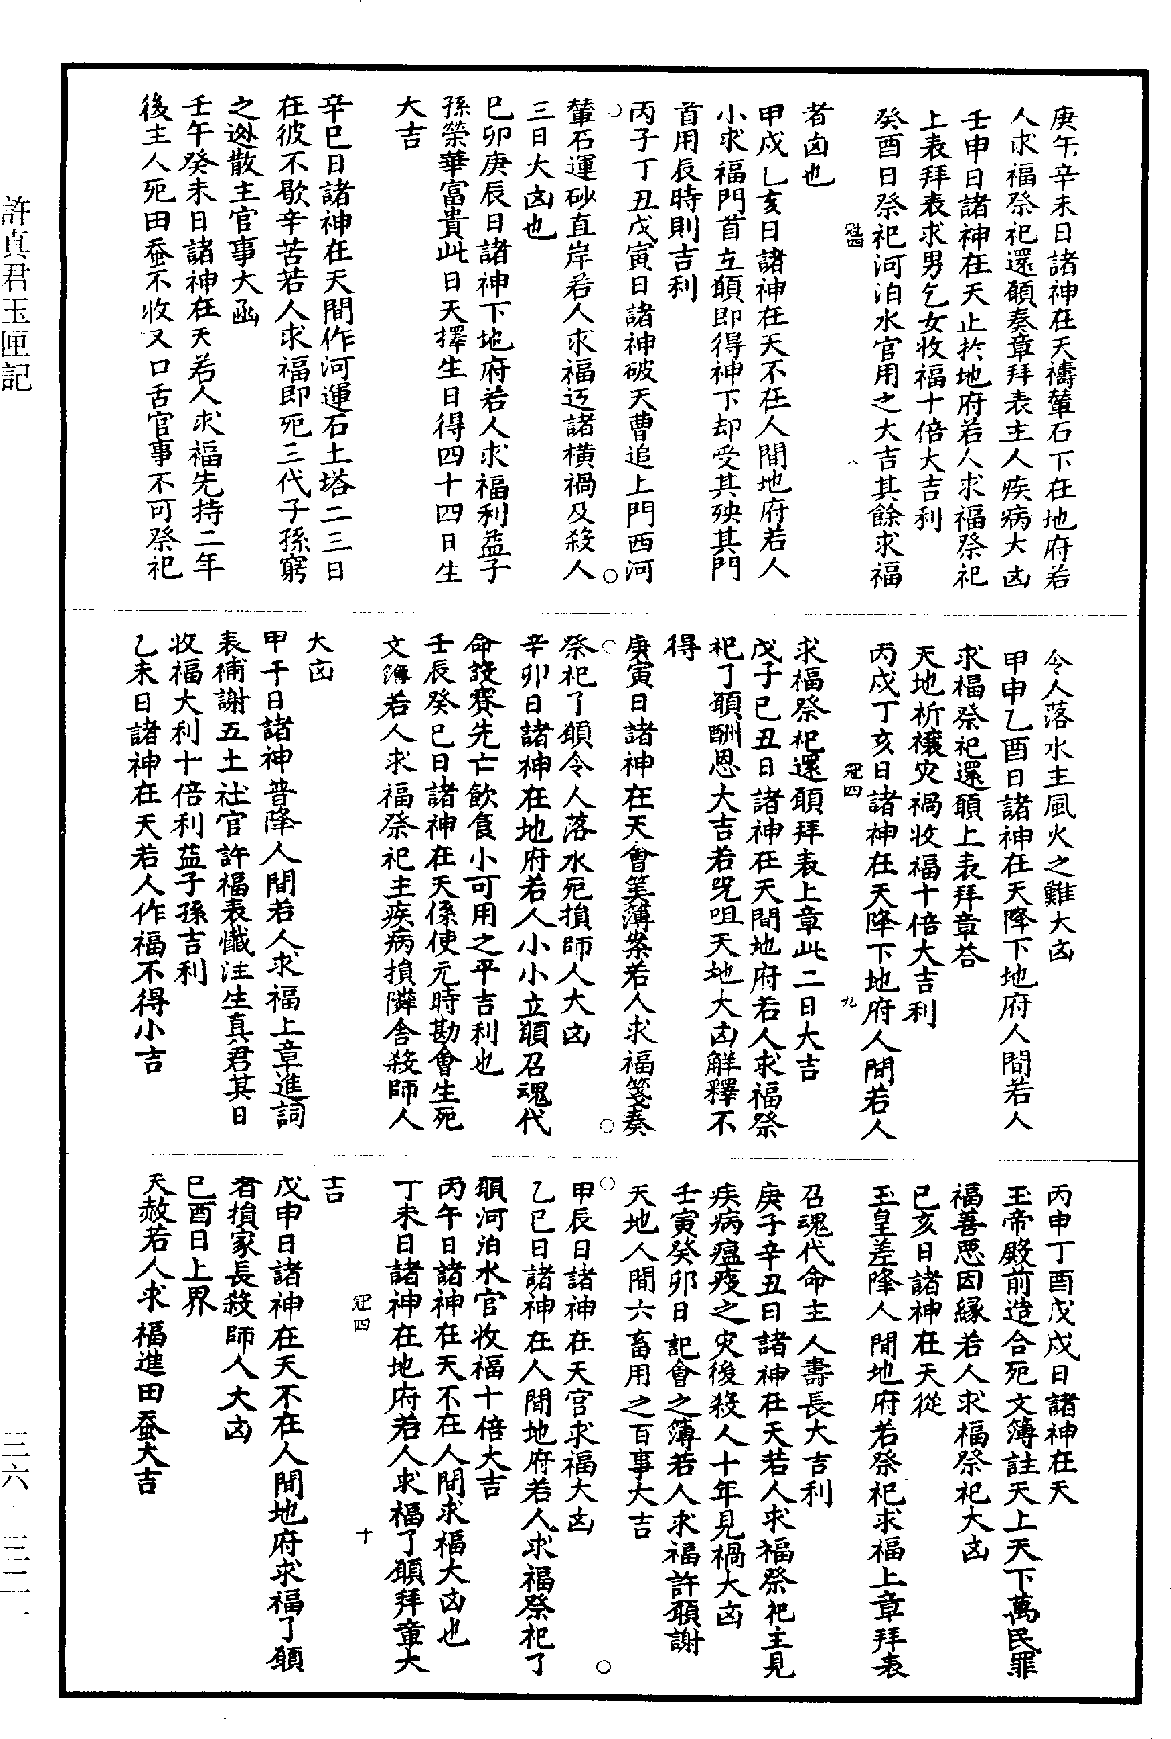 庚午辛未日諸神在天禱輦石下在地府若
人求福祭祀還願奏章拜表主人疾病大凶
壬申日諸神在天止於地府若人求福祭祀
上表拜表求男乞女收福十倍大吉利
癸酉日祭祀河泊水官用之大吉其餘求福
者凶也
甲戍乙亥日諸神在天不在人間地府若人
小求福門首立願即得神下却受其殃其門
首用辰時則吉利
丙子丁丑戊寅日諸神破天曹追上門西河
輦石運砂直岸若人求福迓諸橫禍及殺人
三日大凶也
巳卯庚辰日諸神下地府若人求福利益子
孫榮華富貴此日天擇生日得四十四日生
大吉
辛巳日諸神在天間作河運石土塔二三日
在彼不歇辛苦若人求福即死三代子孫窮
之逊散主官事大凾
壬午癸未日諸神在天若人求福先持二年
後主人死田蚕不收又口舌官事不可祭祀
冠四
八
令人落水主風火之難大凶
甲申乙酉日諸神在天降下地府人間若人
求福祭祀還願上表拜章答
天地祈禳灾禍收福十倍大吉利
丙戍丁亥日諸神在天降下地府人間若人
求福祭祀還願拜表上章此二日大吉
戊子巳丑日諸神在天間地府若人求福祭
祀了願酬恩大吉若咒咀天地大凶解釋不
得
庚寅日諸神在天會筭薄案若人求福箋奏
祭祀了願令人落水死損師人大凶
辛卯日諸神在地府若人小小立願召魂代
命設賽先亡飲食小可用之平吉利也
壬辰癸巳日諸神在天係使元時勘會生死
文簿若人求福祭祀主疾病損隣舍殺師人
大凶
甲午日諸神普降人間若人求福上章進詞
表補謝五土社官許福表懺注生真君其日
收福大利十倍利益子孫吉利
乙未日諸神在天若人作福不得小吉
冠四
九
丙申丁酉戊戍日諸神在天
玉帝殿前造合死文簿註天上天下萬民罪
福善惡因緣若人求福祭祀大凶
巳亥日諸神在天從
玉皇差降人間地府若祭祀求福上章拜表
召魂代命主人壽長大吉利
庚子辛丑日諸神在天若人求福祭祀主見
疾病瘟疫之灾後殺人十年見禍大凶
壬寅癸卯日記會之簿若人求福許願謝
天地人間六畜用之百事大吉
甲辰日諸神在天宮求福大凶
乙巳日諸神在人間地府若人求福祭祀了
願河泊水官收福十倍大吉
丙午日諸神在天不在人間求福大凶也
丁未日諸神在地府若人求福了願拜章大
吉
戊申日諸神在天不在人間地府求福了願
者損家長殺師人大凶
巳酉日上界
天赦若人求福進田蚕大吉
冠四
十
許真君玉匣記
三六